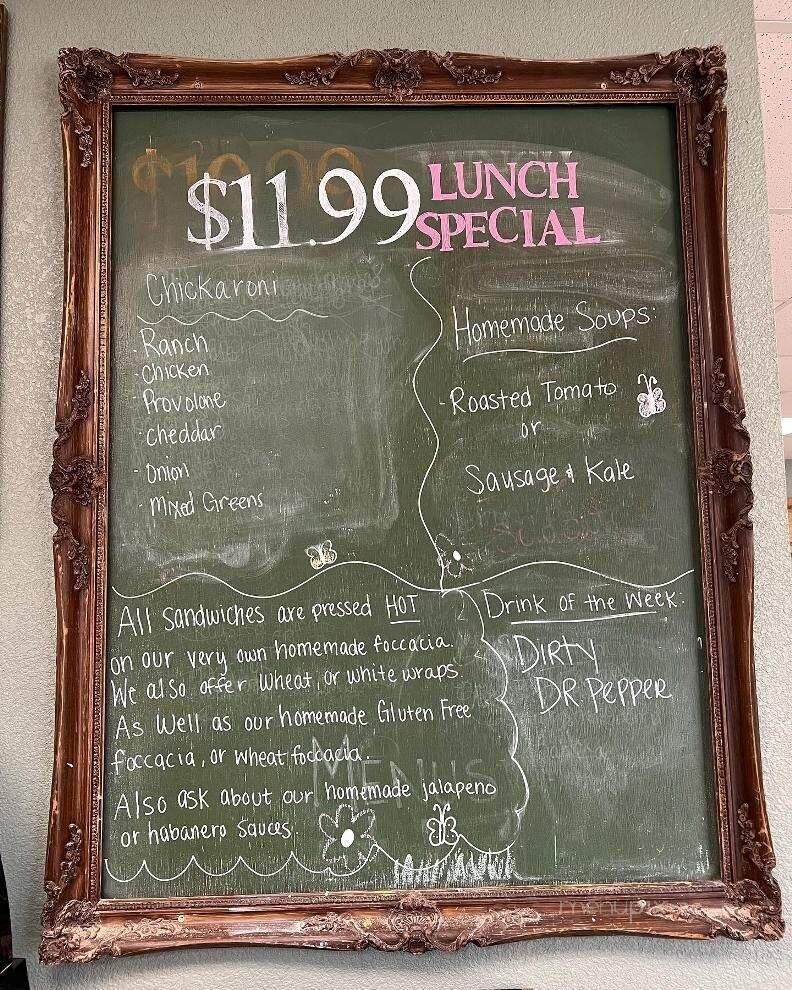 $10.99
$11.99 LUNCH
SPECIAL
Chickaroni
- Ranch
- Chicken
- Provolone
- Cheddar
- Onion
- Mixed Greens
Homemade Soups:
- Roasted Tomato
or
Sausage & Kale
All Sandwiches are pressed HOT
on our very own homemade foccacia.
We also offer Wheat, or white wraps.
As Well as our homemade Gluten Free
foccacia, or wheat foccacia.
Also ask about our homemade jalapeno
or habanero Sauces.
MENUS
Drink of the Week:
DIRTY
DR. PEPPER
menupix